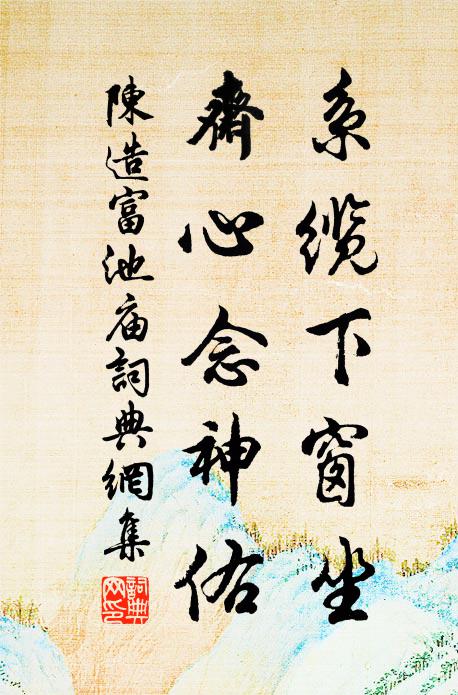 系缆下窗坐
齋心念神佑
陳造富池庙詞典網集
詞典网印